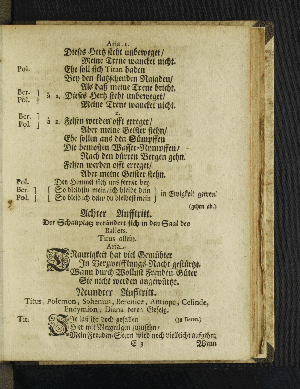 Aria. 1.
Dieses Hertz steht unbeweget/
Meine Treue wancket nicht.
Pol. Ehe soll sich Titan baden
Bey den klatschenden Najaden/
Als daß meine Treue bricht.
Ber. Pol. } à 2. Dieses Hertz steht unbeweget/
Meine Treue wancket nicht.
2.
Ber. Pol. } à 2. Felsen werden offt erreget/
Aber meine Geister stehn/
Ehe sollen aus den Sümpffen
Die bemosten Wasser-Nympffen/
Nach den dürren Bergen gehn.
Felsen werden offt erreget/
Aber meine Geister stehn.
Pol. Der Himmel sich uns ferner bey
Ber. { So bleibstu mein/ich bleibe dein
Pol. { So bleib ich dein/du bleibest mein } in Ewigkeit getreu
(gehen ab.)
Achter Aufftritt.
Der Schauplatz verändert sich in den Saal des
Kaisers.
Titus allein.
Aria.
Traurigkeit hat viel Gemühter
In Verzweifflungs-Nacht gestürtzt.
Wann durch Wollust Freuden Güter
Sie nicht werden angewürtzt.
Neundter Aufftritt.
Titus, Polemon, Berenice, Antiope, Celinde,
Endymion, Diana
Tit.
Mein
E 3 Wann